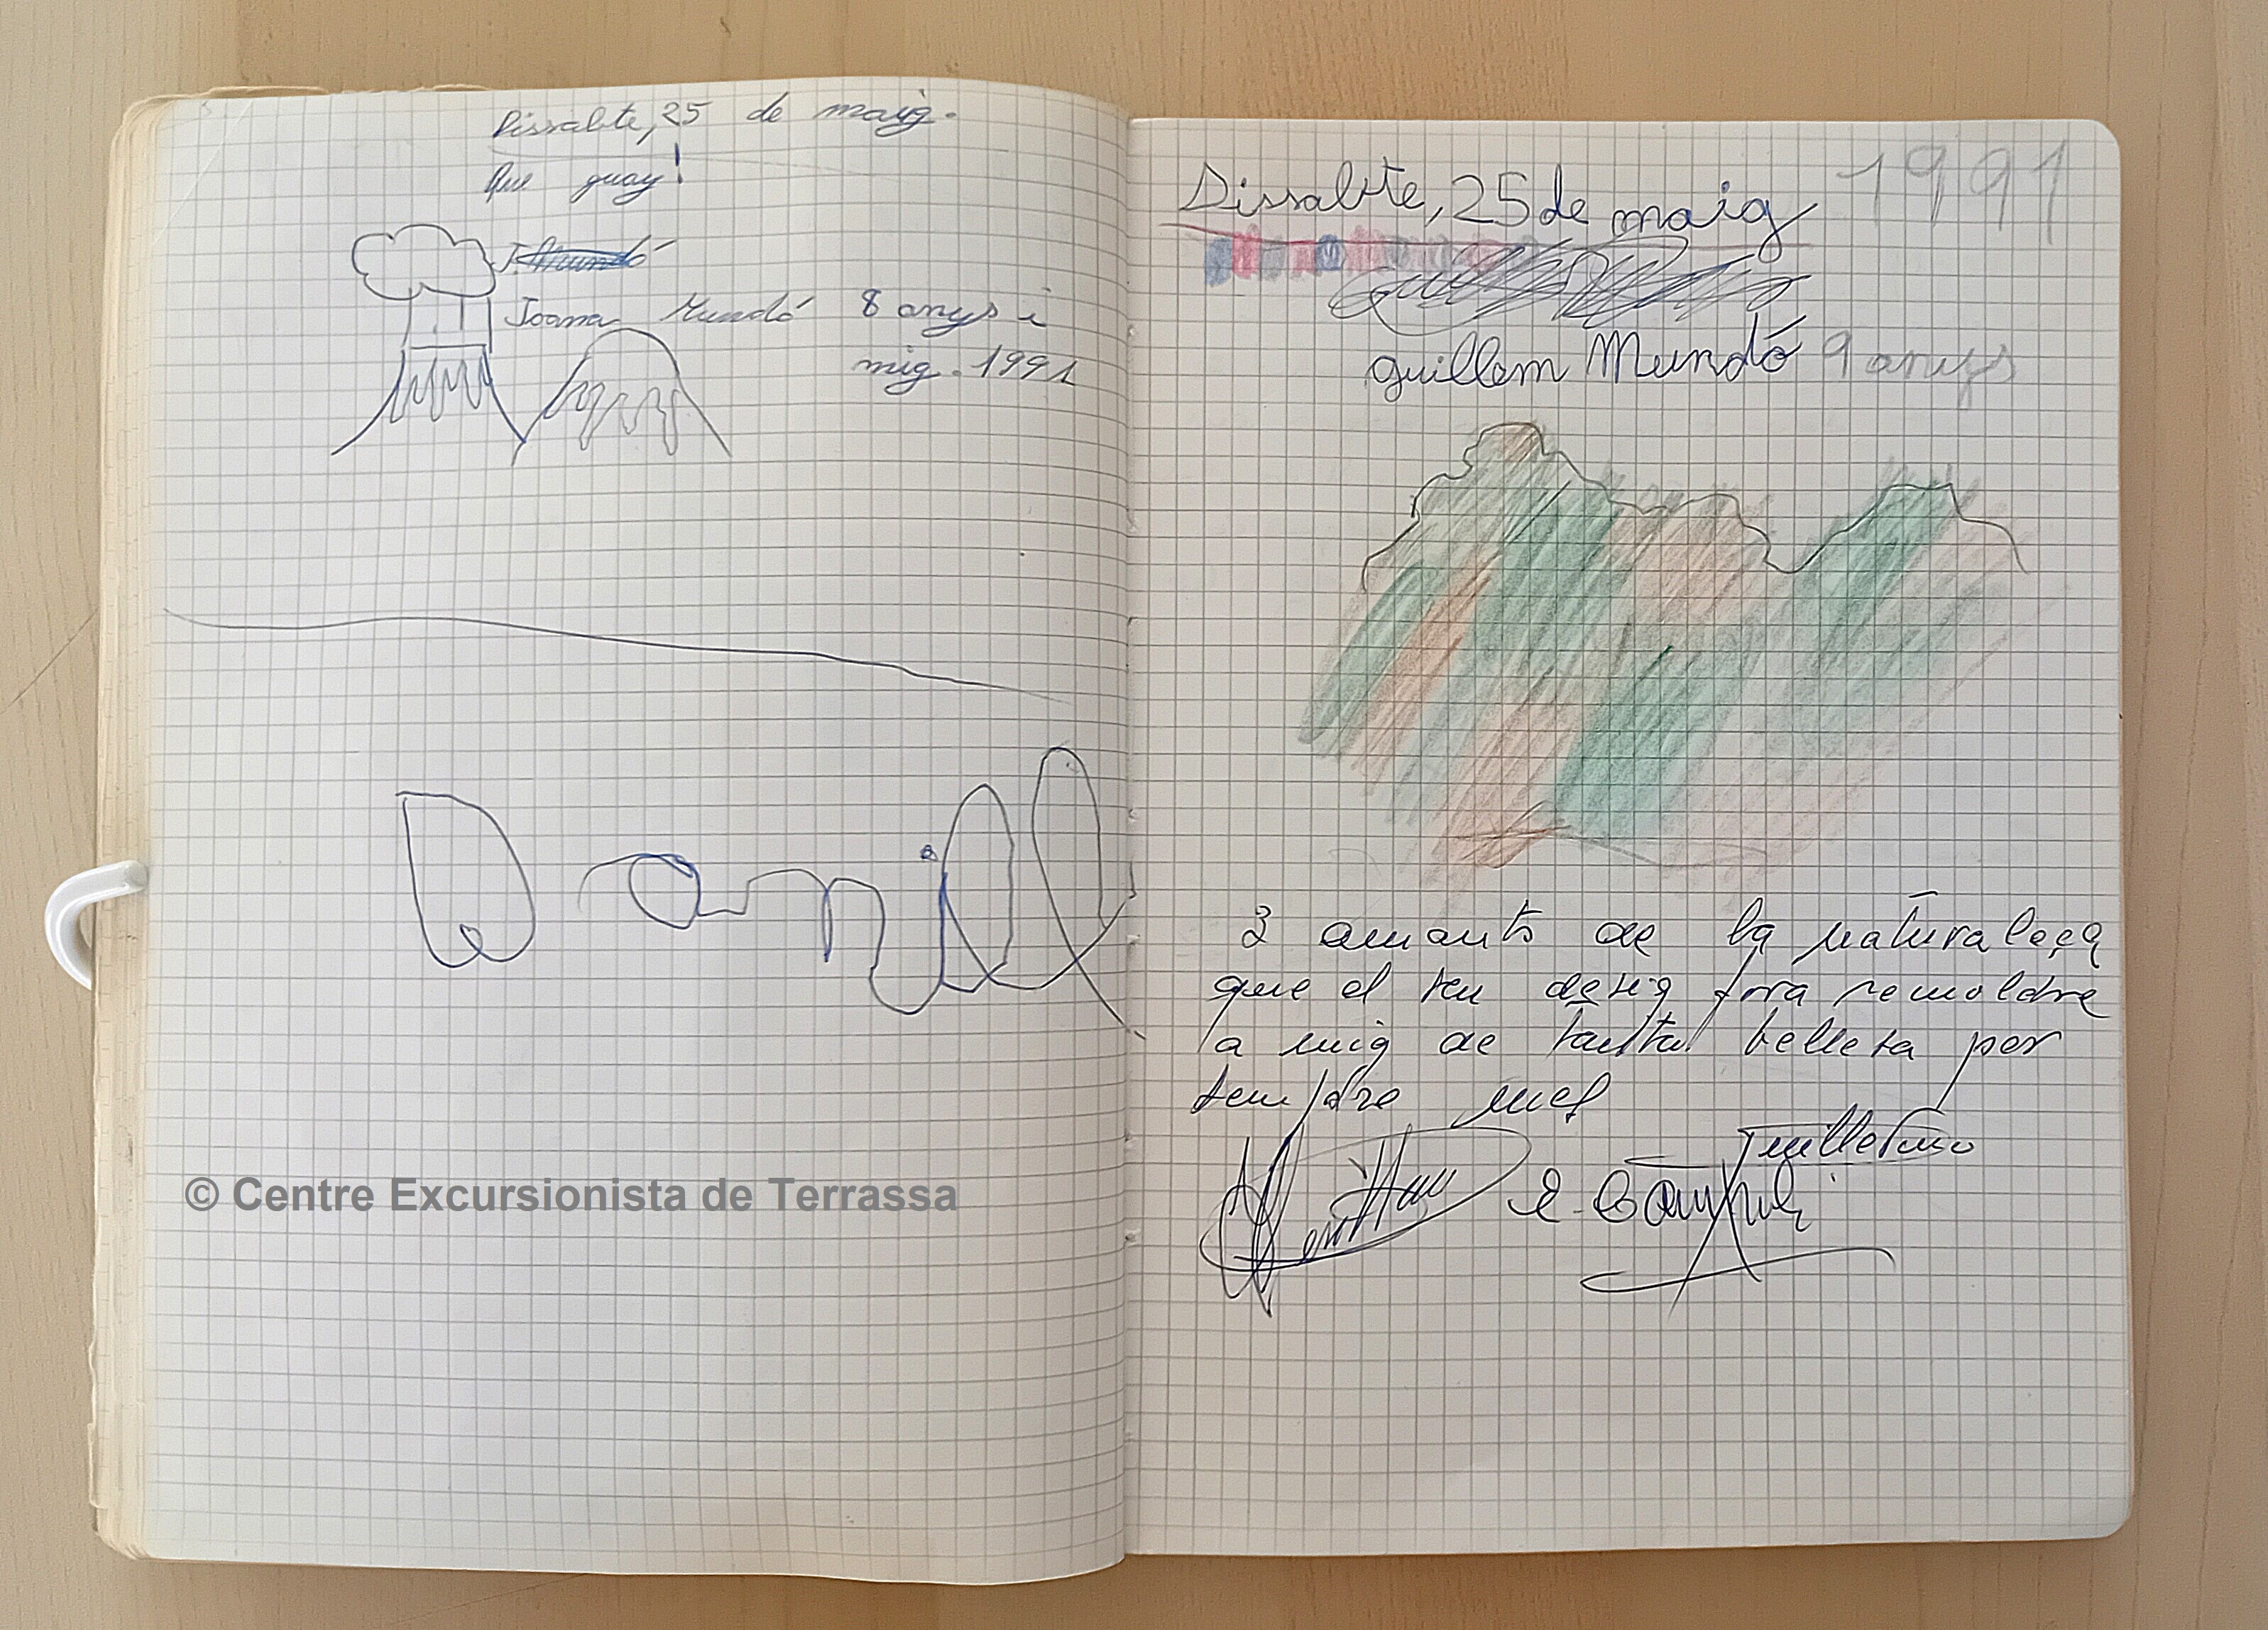 Dissabte, 25 de maig.
Que guay!
J. Mundó
Joana Mundó 8 anys i
mig. 1991
Danill
© Centre Excursionista de Terrassa
Dissabte, 25 de maig 1991
guillem Mundó 9 anys
3 amants de la naturaleça
que el seu desig fora remoldre
a mig de tanta bellesa per
sempre més
Guillermo